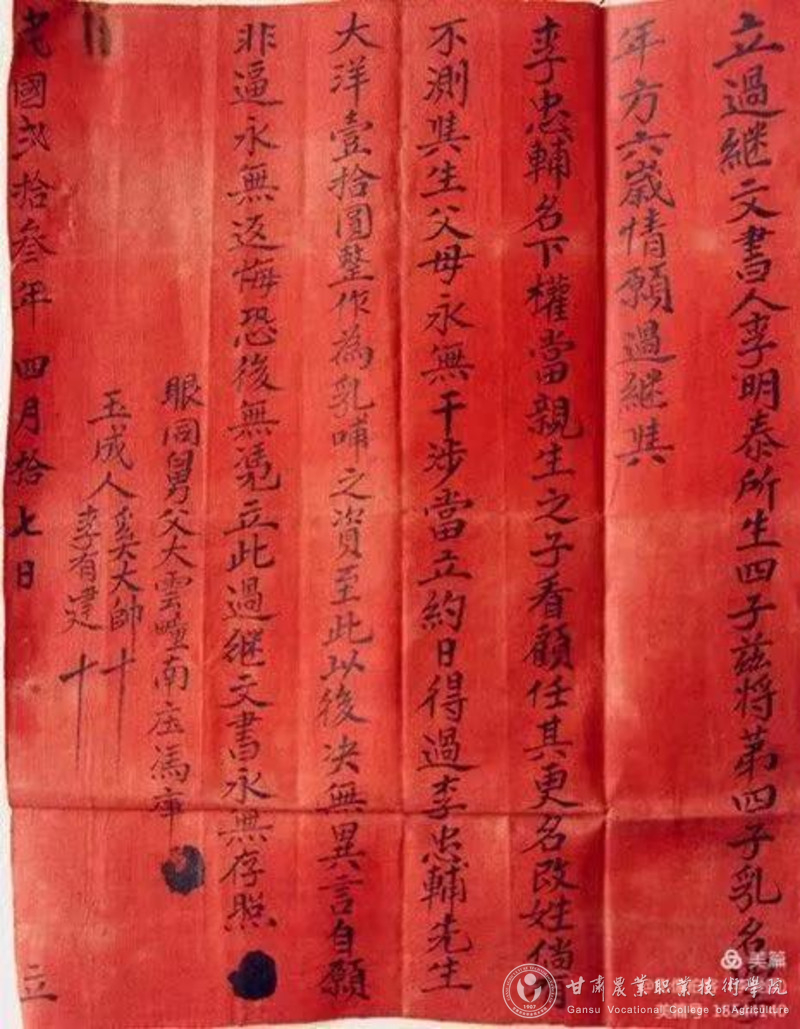 立過継文書人李明泰所生四子茲将第四子乳名
年方六歳情願過継與
李忠輔名下權當親生之子看顧任其更名改姓倘有
不測與生父母永無干涉當立約日得過李忠輔先生
大洋壹拾圓整作為乳哺之資至此以後决無異言自願
非逼永無返悔恐後無凴立此過継文書永無存照
眼同舅父大雲疃南庄馮
玉成人
吴大帥 十
李有建 十
民國貳拾叁年四月拾七日
立
美篇
甘肃農業職業技術學院
Gansu Vocational College of Agriculture